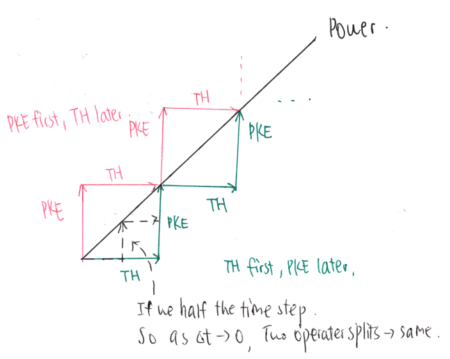 Power.
TH
PKE first, TH later.
PKE
PKE
TH
PKE
TH
PKE
TH
TH first, PKE later,
If we half the time step.
So as Δt → 0, Two operater splits → same.